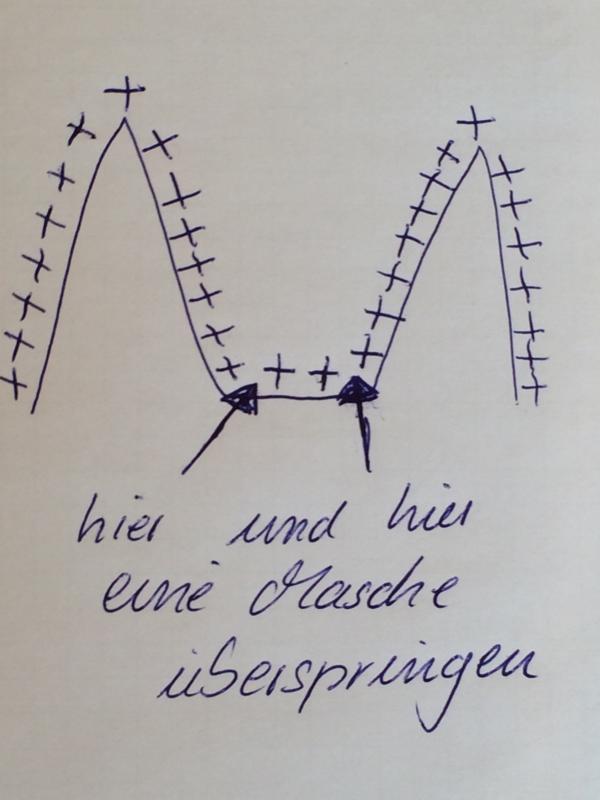 hier und hier
eine Masche
überspringen